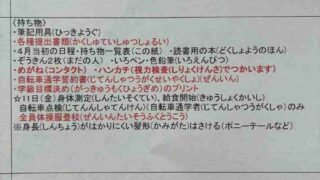 <持ち物>
・筆記用具(ひっきようぐ)
・各種提出書類(かくしゅていしゅつしょるい)
・4月当初の日程・持ち物一覧表(この紙) ・読書用の本(どくしょようのほん)
・ぞうきん2枚(まだの人) ・いろペン・色鉛筆(いろえんぴつ)
・めがね(コンタクト) ・ハンカチ(視力検査(しりょくけんさ)でつかいます)
・自転車通学誓約書(じてんしゃつうがくせいやくしょ)(ぜんいん)
・学級目標決め(がっきゅうもくひょうぎめ)のプリント
☆11日(金)身体測定(しんたいそくてい)、給食開始(きゅうしょくかいし)
自転車点検(じてんしゃてんけん)(自転車通学者(じてんしゃつうがくしゃ)のみ
全員体操服登校(ぜんいんたいそうふくとうこう)
※身長(しんちょう)がはかりにくい髪形(かみがた)はさける(ポニーテールなど)